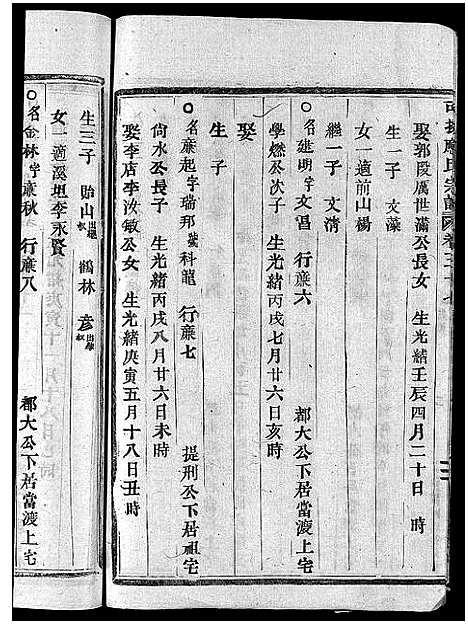 娶郭段厲世瀟公長女　生光緒壬辰四月二十日　時
生一子　文藻
女一適前山楊
繼一子　文清
○名建明字文昌　行廉六　都大公下居當渡上宅
學燃公次子　生光緒丙戌七月廿六日亥時
娶
生　子
○名廉起字瑞邦號科龍　行廉七　提刑公下居祖宅
尚水公長子　生光緒丙戌八月廿六日未時
娶李店李汝敏公女　生光緒庚寅五月十八日丑時
生三子　貽山出繼　鶴林　彥出繼
女一適溪坦李永賢
○名金林字廉秋　行廉八　都大公下居當渡上宅